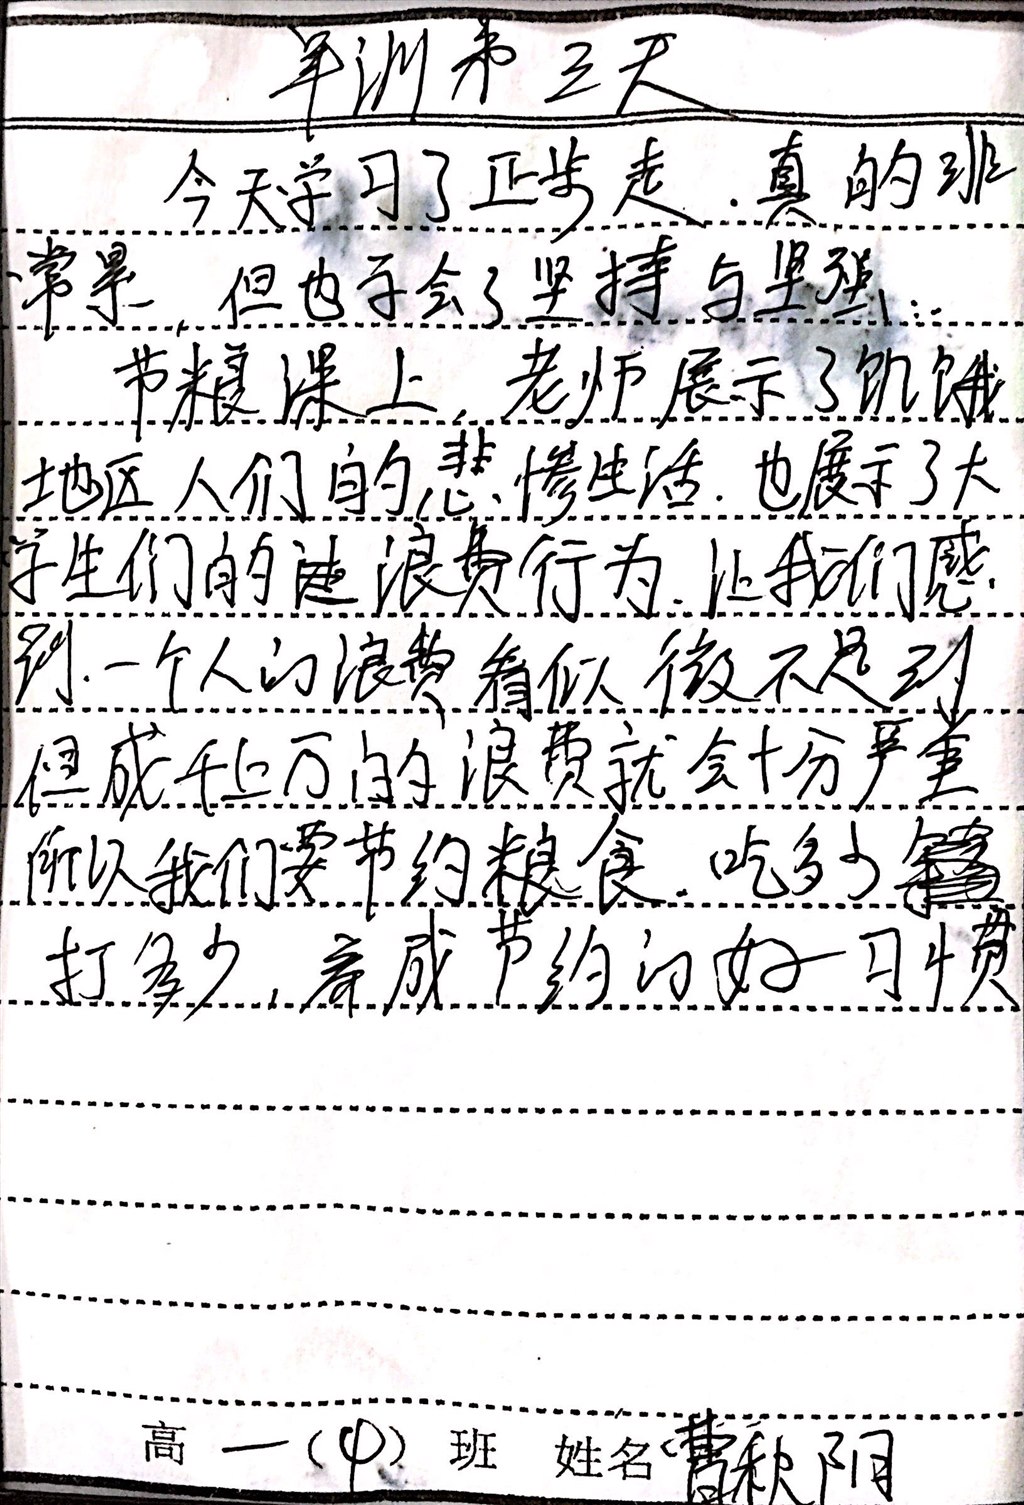 军训第三天
今天学习了正步走.真的非
常累,但也学会了坚持与坚强..
节粮课上,老师展示了饥饿
地区人们的悲惨生活.也展示了大
学生们的浪费行为.让我们感
到.一个人的浪费看似微不足到
但成千上万的浪费就会十分严重
所以我们要节约粮食.吃多少
打多少,养成节约的好习惯
高一(4)班 姓名曹秋阳